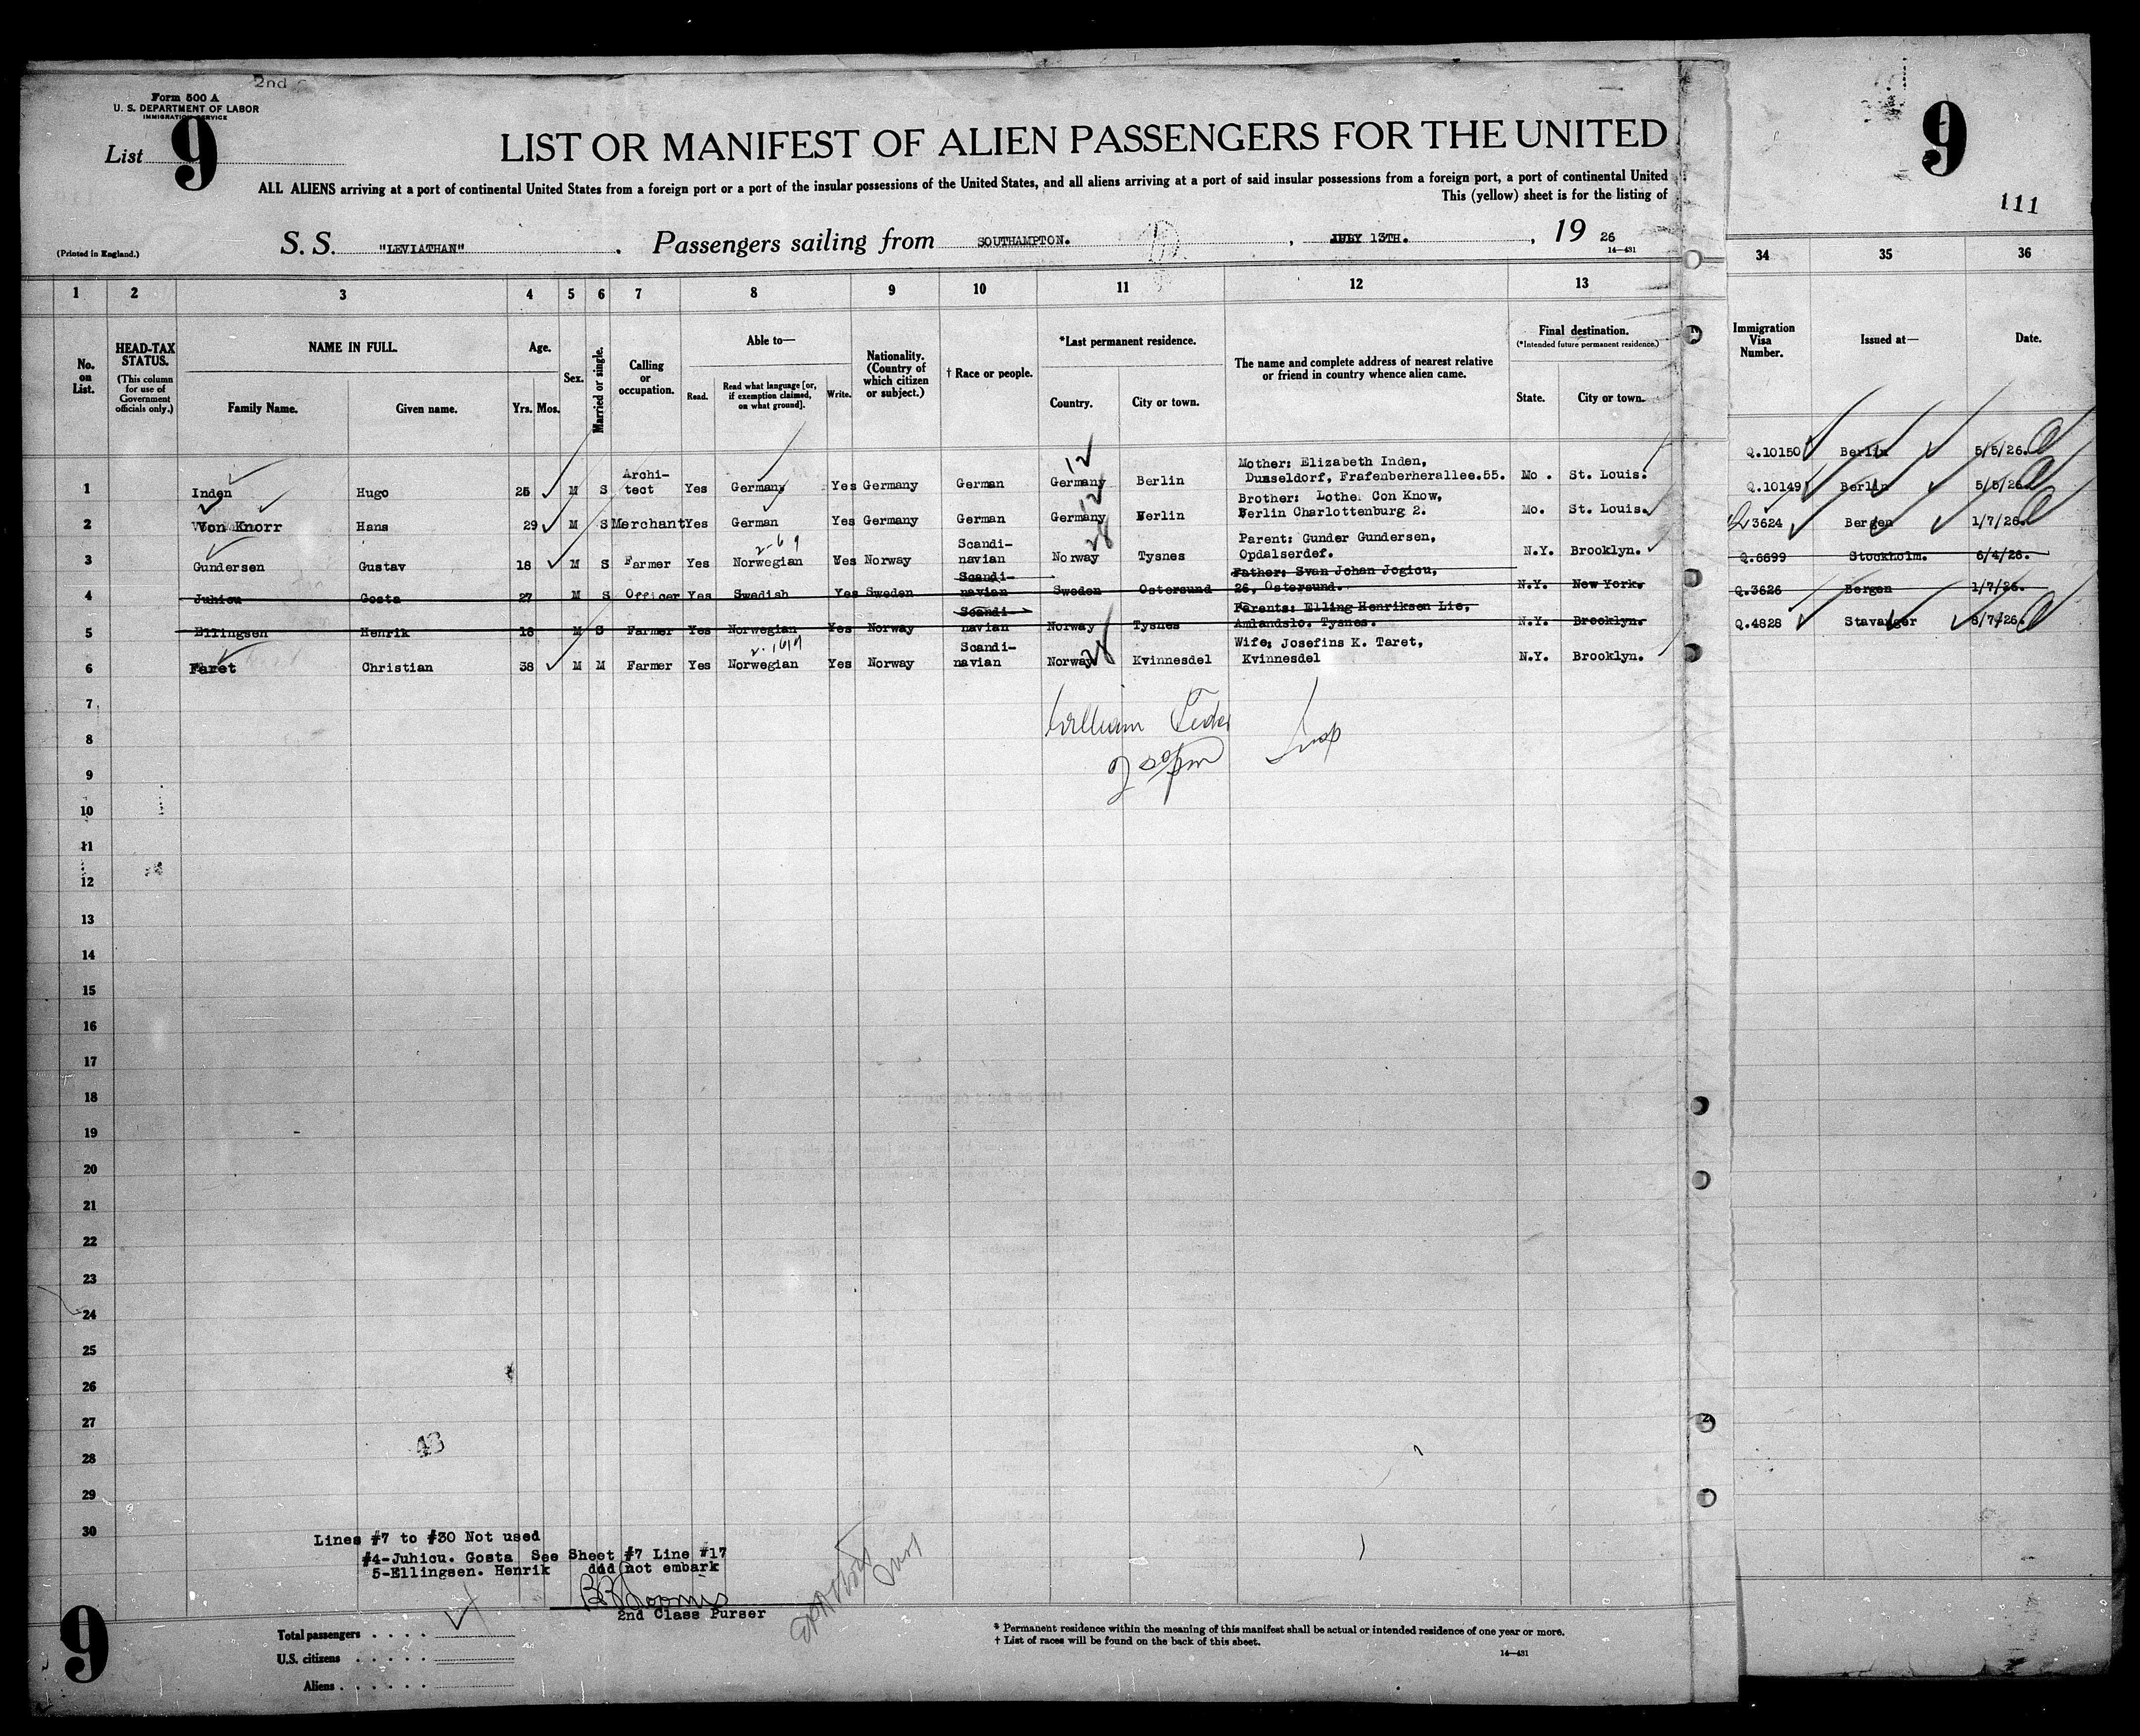 2nd
Form 500 A
U. S. DEPARTMENT OF LABOR
IMMIGRATION SERVICE
List 9
LIST OR MANIFEST OF ALIEN PASSENGERS FOR THE UNITED
ALL ALIENS arriving at a port of continental United States from a foreign port or a port of the insular possessions of the United States, and all aliens arriving at a port of said insular possessions from a foreign port, a port of continental United
This (yellow) sheet is for the listing of
9
111
(Printed in England.)
S. S. "LEVIATHAN". Passengers sailing from SOUTHAMPTON. , JULY 13TH. , 19 26
14—431
1 2 3 4 5 6 7 8 9 10 11 12 13 34 35 36
No. on List.
HEAD-TAX STATUS.
(This column for use of Government officials only.)
NAME IN FULL.
Family Name. Given name.
Age.
Yrs. Mos.
Sex.
Married or single.
Calling or occupation.
Able to—
Read. Read what language [or, if exemption claimed, on what ground]. Write.
Nationality. (Country of which citizen or subject.)
† Race or people.
*Last permanent residence.
Country. City or town.
The name and complete address of nearest relative or friend in country whence alien came.
Final destination.
(*Intended future permanent residence.)
State. City or town.
Immigration Visa Number.
Issued at—
Date.
1 Inden Hugo 25 M S Archi-tect Yes Germany Yes Germany German Germany Berlin Mother: Elizabeth Inden, Dusseldorf, Frafenberherallee.55. Mo. St. Louis.
2 Von Knorr Hans 29 M S Merchant Yes German Yes Germany German Germany Berlin Brother: Lothe. Con Know, Berlin Charlottenburg 2. Mo. St. Louis.
3 Gundersen Gustav 18 M S Farmer Yes Norwegian Yes Norway Scandi-navian Norway Tysnes Parent: Gunder Gundersen, Opdalserdef. N.Y. Brooklyn.
4 Juhiou Gosta 27 M S Officer Yes Swedish Yes Sweden Scandi-navian Sweden Ostersund Father: Svan Johan Jogiou, 26, Ostersund. N.Y. New York.
5 Ellingsen Henrik 18 M S Farmer Yes Norwegian Yes Norway Scandi-navian Norway Tysnes Parents: Elling Henriksen Lie, Amlandslo. Tysnes. N.Y. Brooklyn.
6 Faret Christian 38 M M Farmer Yes Norwegian Yes Norway Scandi-navian Norway Kvinnesdel Wife: Josefins K. Taret, Kvinnesdel N.Y. Brooklyn.
Q.10150 Berlin 5/5/26.
Q.10149 Berlin 5/5/26
3624 Bergen 1/7/26.
Q.6699 Stockholm. 6/4/26.
Q.3626 Bergen 1/7/26.
Q.4828 Stavanger 8/7/26.
7
William
8
Insp
9
10
11
12
13
14
15
16
17
18
19
20
21
22
23
24
25
26
27
28
29
30
43
Lines #7 to #30 Not used
#4-Juhiou. Gosta See Sheet #7 Line #17
5-Ellingsen. Henrik did not embark
2nd Class Purser
9
Total passengers
U.S. citizens
Aliens
* Permanent residence within the meaning of this manifest shall be actual or intended residence of one year or more.
† List of races will be found on the back of this sheet.
14—431